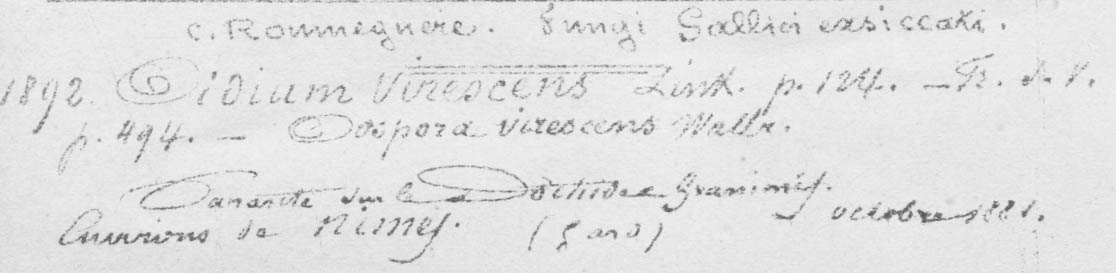 C. Roumeguère. Fungi Gallici exsiccati.
1892. Oidium Virescens Link. p. 124. — Fr. S. V.
p. 494. — Oospora virescens Wallr.
Parasite sur le Dothidea Graminis.
Environs de Nimes. (Gard) octobre 1881.